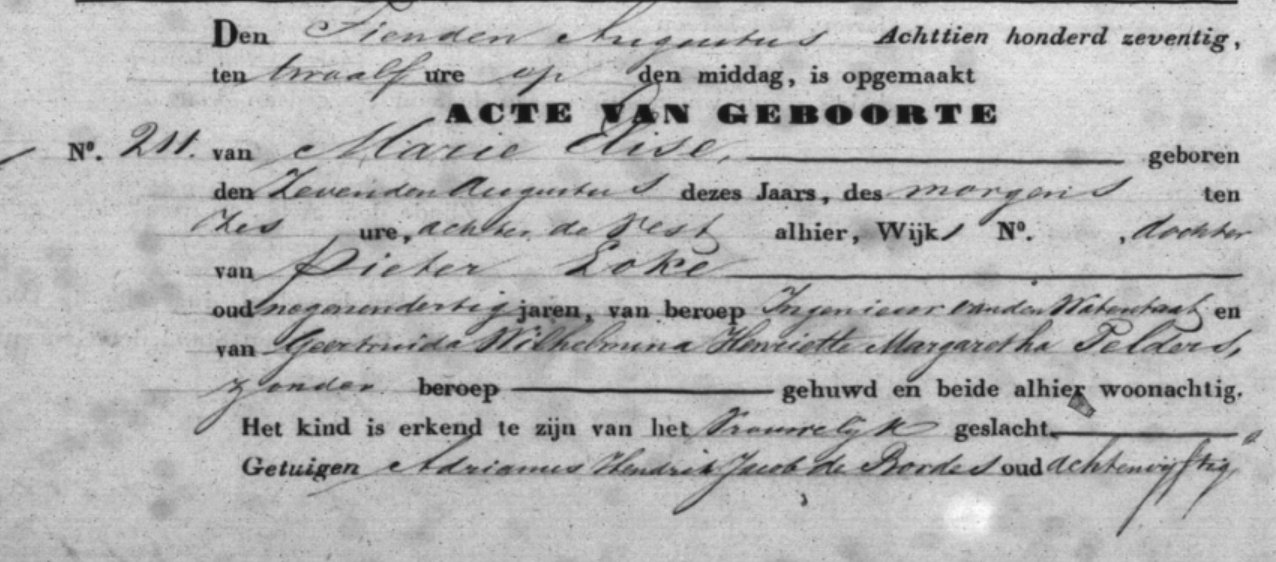 Den Tienden Augustus Achttien honderd zeventig,
ten twaalf ure op den middag, is opgemaakt
ACTE VAN GEBOORTE
Nº. 211. van Marie Elise, geboren
den Zevenden Augustus dezes Jaars, des morgens ten
Zes ure, achter de Vest alhier, Wijk Nº. , dochter
van Pieter Loke
oud negenendertig jaren, van beroep Ingenieur van den Waterstaat en
van Geertruida Wilhelmina Henriette Margaretha Telders,
zonder beroep gehuwd en beide alhier woonachtig.
Het kind is erkend te zijn van het Vrouwelijk geslacht.
Getuigen Adrianus Hendrik Jacob de Bordes oud achtenvijftig